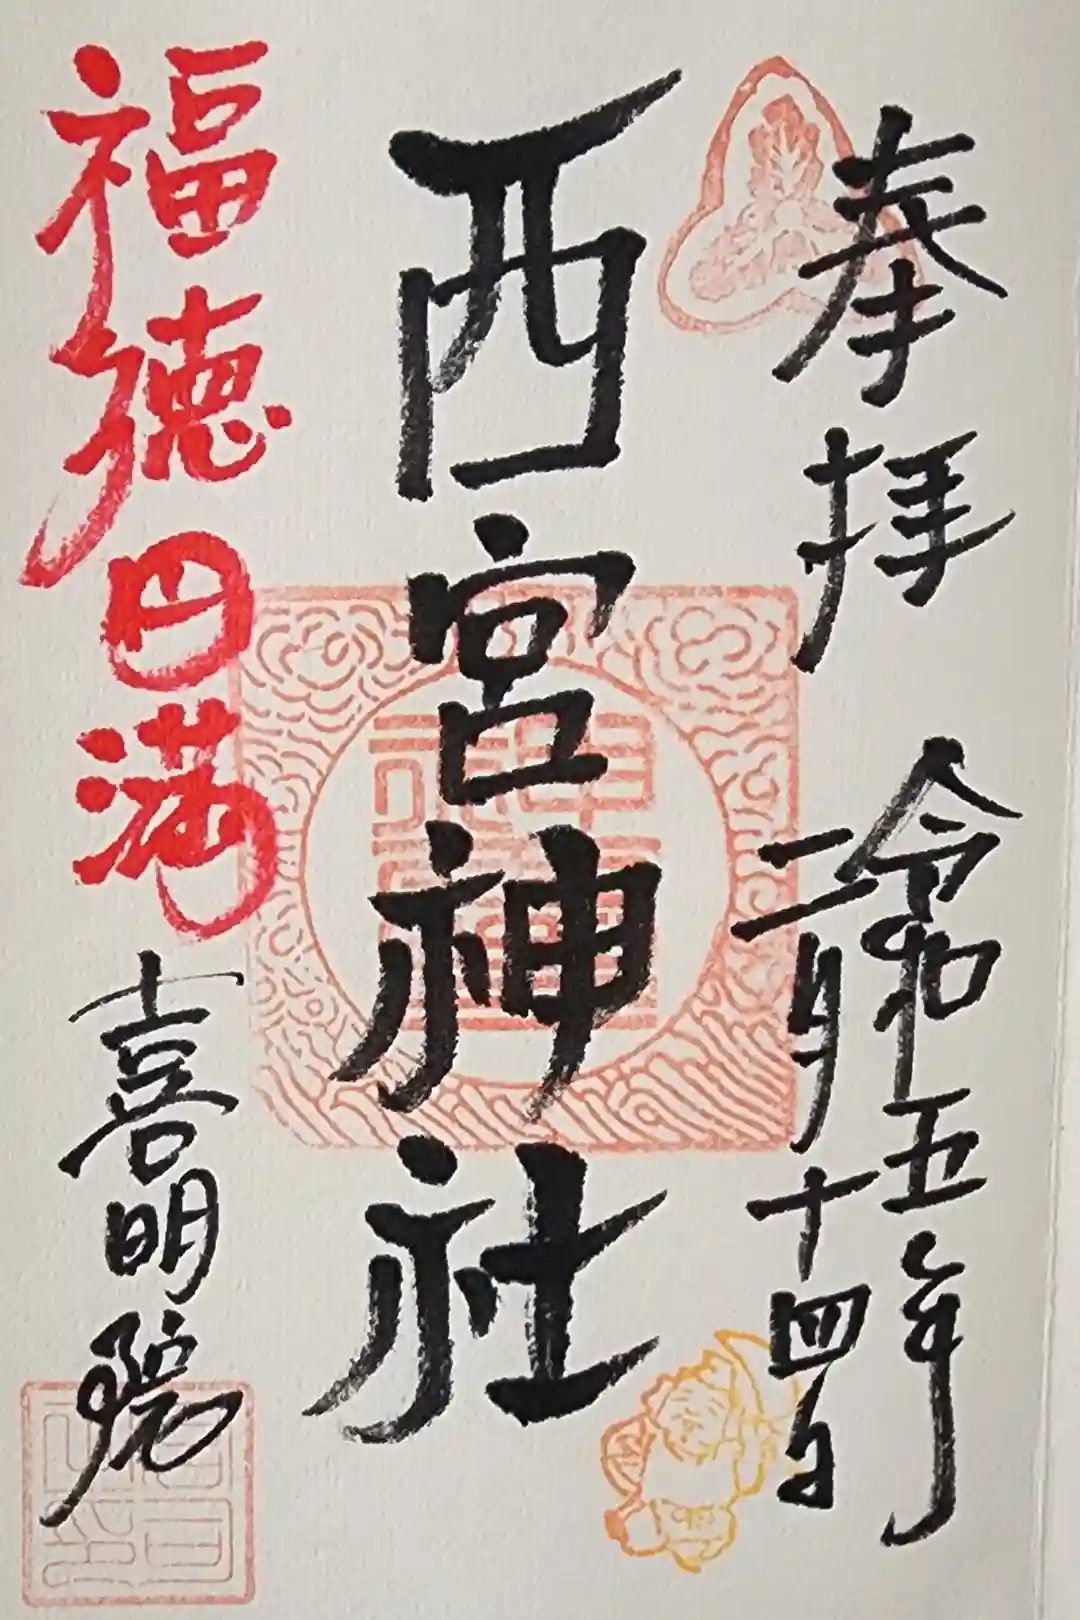 奉拝 令和五年
二月十四日
西宮神社
福徳円満
喜明院